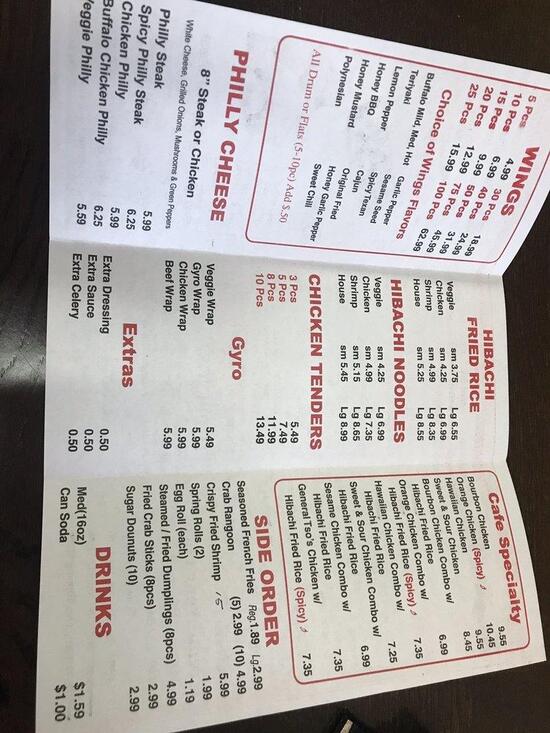 WINGS
5 Pcs 4.99 30 Pcs 18.99
10 Pcs 6.99 40 Pcs 24.99
15 Pcs 9.99 50 Pcs 31.99
20 Pcs 12.99 75 Pcs 45.99
25 Pcs 15.99 100 Pcs 62.99
Choice of Wings Flavors
Buffalo Mild, Med, Hot Garlic Pepper
Teriyaki Sesame Seed
Lemon Pepper Spicy Texan
Honey BBQ Cajun
Honey Mustard Original Fried
Polynesian Honey Garlic Pepper
Sweet Chili
All Drum or Flats (5-10pc) Add $.50
PHILLY CHEESE
8" Steak or Chicken
White Cheese, Grilled Onions, Mushrooms & Green Peppers
Philly Steak 5.99
Spicy Philly Steak 6.25
Chicken Philly 5.99
Buffalo Chicken Philly 6.25
Veggie Philly 5.59
HIBACHI
FRIED RICE
Veggie sm 3.75 Lg 6.55
Chicken sm 4.25 Lg 6.99
Shrimp sm 4.99 Lg 8.35
House sm 5.25 Lg 8.55
HIBACHI NOODLES
Veggie sm 4.25 Lg 6.99
Chicken sm 4.99 Lg 7.35
Shrimp sm 5.15 Lg 8.65
House sm 5.45 Lg 8.99
CHICKEN TENDERS
3 Pcs 5.49
5 Pcs 7.49
8 Pcs 11.99
10 Pcs 13.49
Gyro
Veggie Wrap 5.49
Gyro Wrap 5.99
Chicken Wrap 5.99
Beef Wrap 5.99
Extras
Extra Dressing 0.50
Extra Sauce 0.50
Extra Celery 0.50
Cafe Specialty
Bourbon Chicken 9.55
Orange Chicken (Spicy) 10.45
Hawaiian Chicken 9.55
Sweet & Sour Chicken 8.45
Bourbon Chicken Combo w/
Hibachi Fried Rice 6.99
Orange Chicken Combo w/
Hibachi Fried Rice (Spicy) 7.35
Hawaiian Chicken Combo w/
Hibachi Fried Rice 7.25
Sweet & Sour Chicken Combo w/
Hibachi Fried Rice 6.99
Sesame Chicken Combo w/
Hibachi Fried Rice 7.35
General Tso's Chicken w/
Hibachi Fried Rice (Spicy) 7.35
SIDE ORDER
Seasoned French Fries Reg.1.89 Lg.2.99
Crab Rangoon (5) 2.99 (10) 4.99
Crispy Fried Shrimp 15 5.99
Spring Rolls (2) 1.99
Egg Roll (each) 1.19
Steamed / Fried Dumplings (8pcs) 4.99
Fried Crab Sticks (8pcs) 2.99
Sugar Dounuts (10) 2.99
DRINKS
Med(16oz) $1.59
Can Soda $1.00